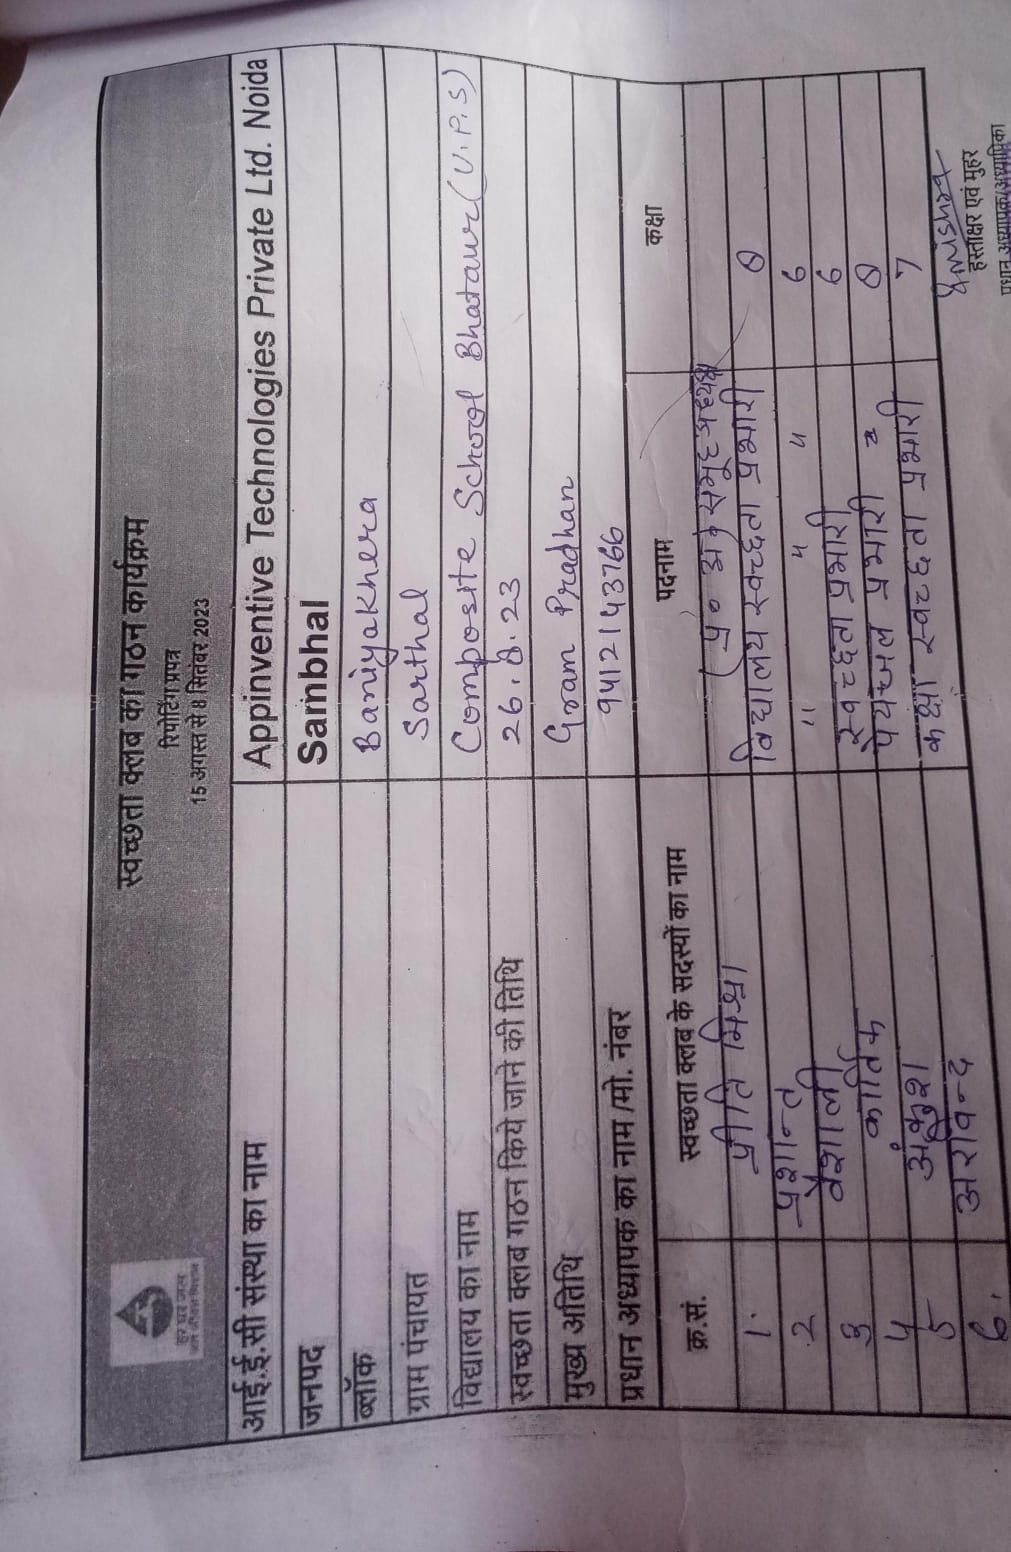 हर घर जल
जल जीवन मिशन
स्वच्छता क्लब का गठन कार्यक्रम
रिपोर्टिंग प्रपत्र
15 अगस्त से 8 सितंबर 2023
आई.ई.सी संस्था का नाम Appinventive Technologies Private Ltd. Noida
जनपद Sambhal
ब्लॉक Baniyakhera
ग्राम पंचायत Sarthal
विद्यालय का नाम Composite School Bhatawr (U.P.S)
स्वच्छता क्लब गठन किये जाने की तिथि 26.8.23
मुख्य अतिथि Gram Pradhan
प्रधान अध्यापक का नाम /मो. नंबर 9412143766
क्र.सं. स्वच्छता क्लब के सदस्यों का नाम पदनाम कक्षा
1. प्रीति मिश्रा
2 प्रशान्त विद्यालय स्वच्छता प्रभारी 8
3 वैशाली " " " 6
4 कार्तिक स्वच्छता प्रभारी 6
5 अंकुश पेयजल प्रभारी 8
6. अरविन्द कक्षा स्वच्छता प्रभारी 7
हस्ताक्षर एवं मुहर
प्रधान अध्यापक/अध्यापिका